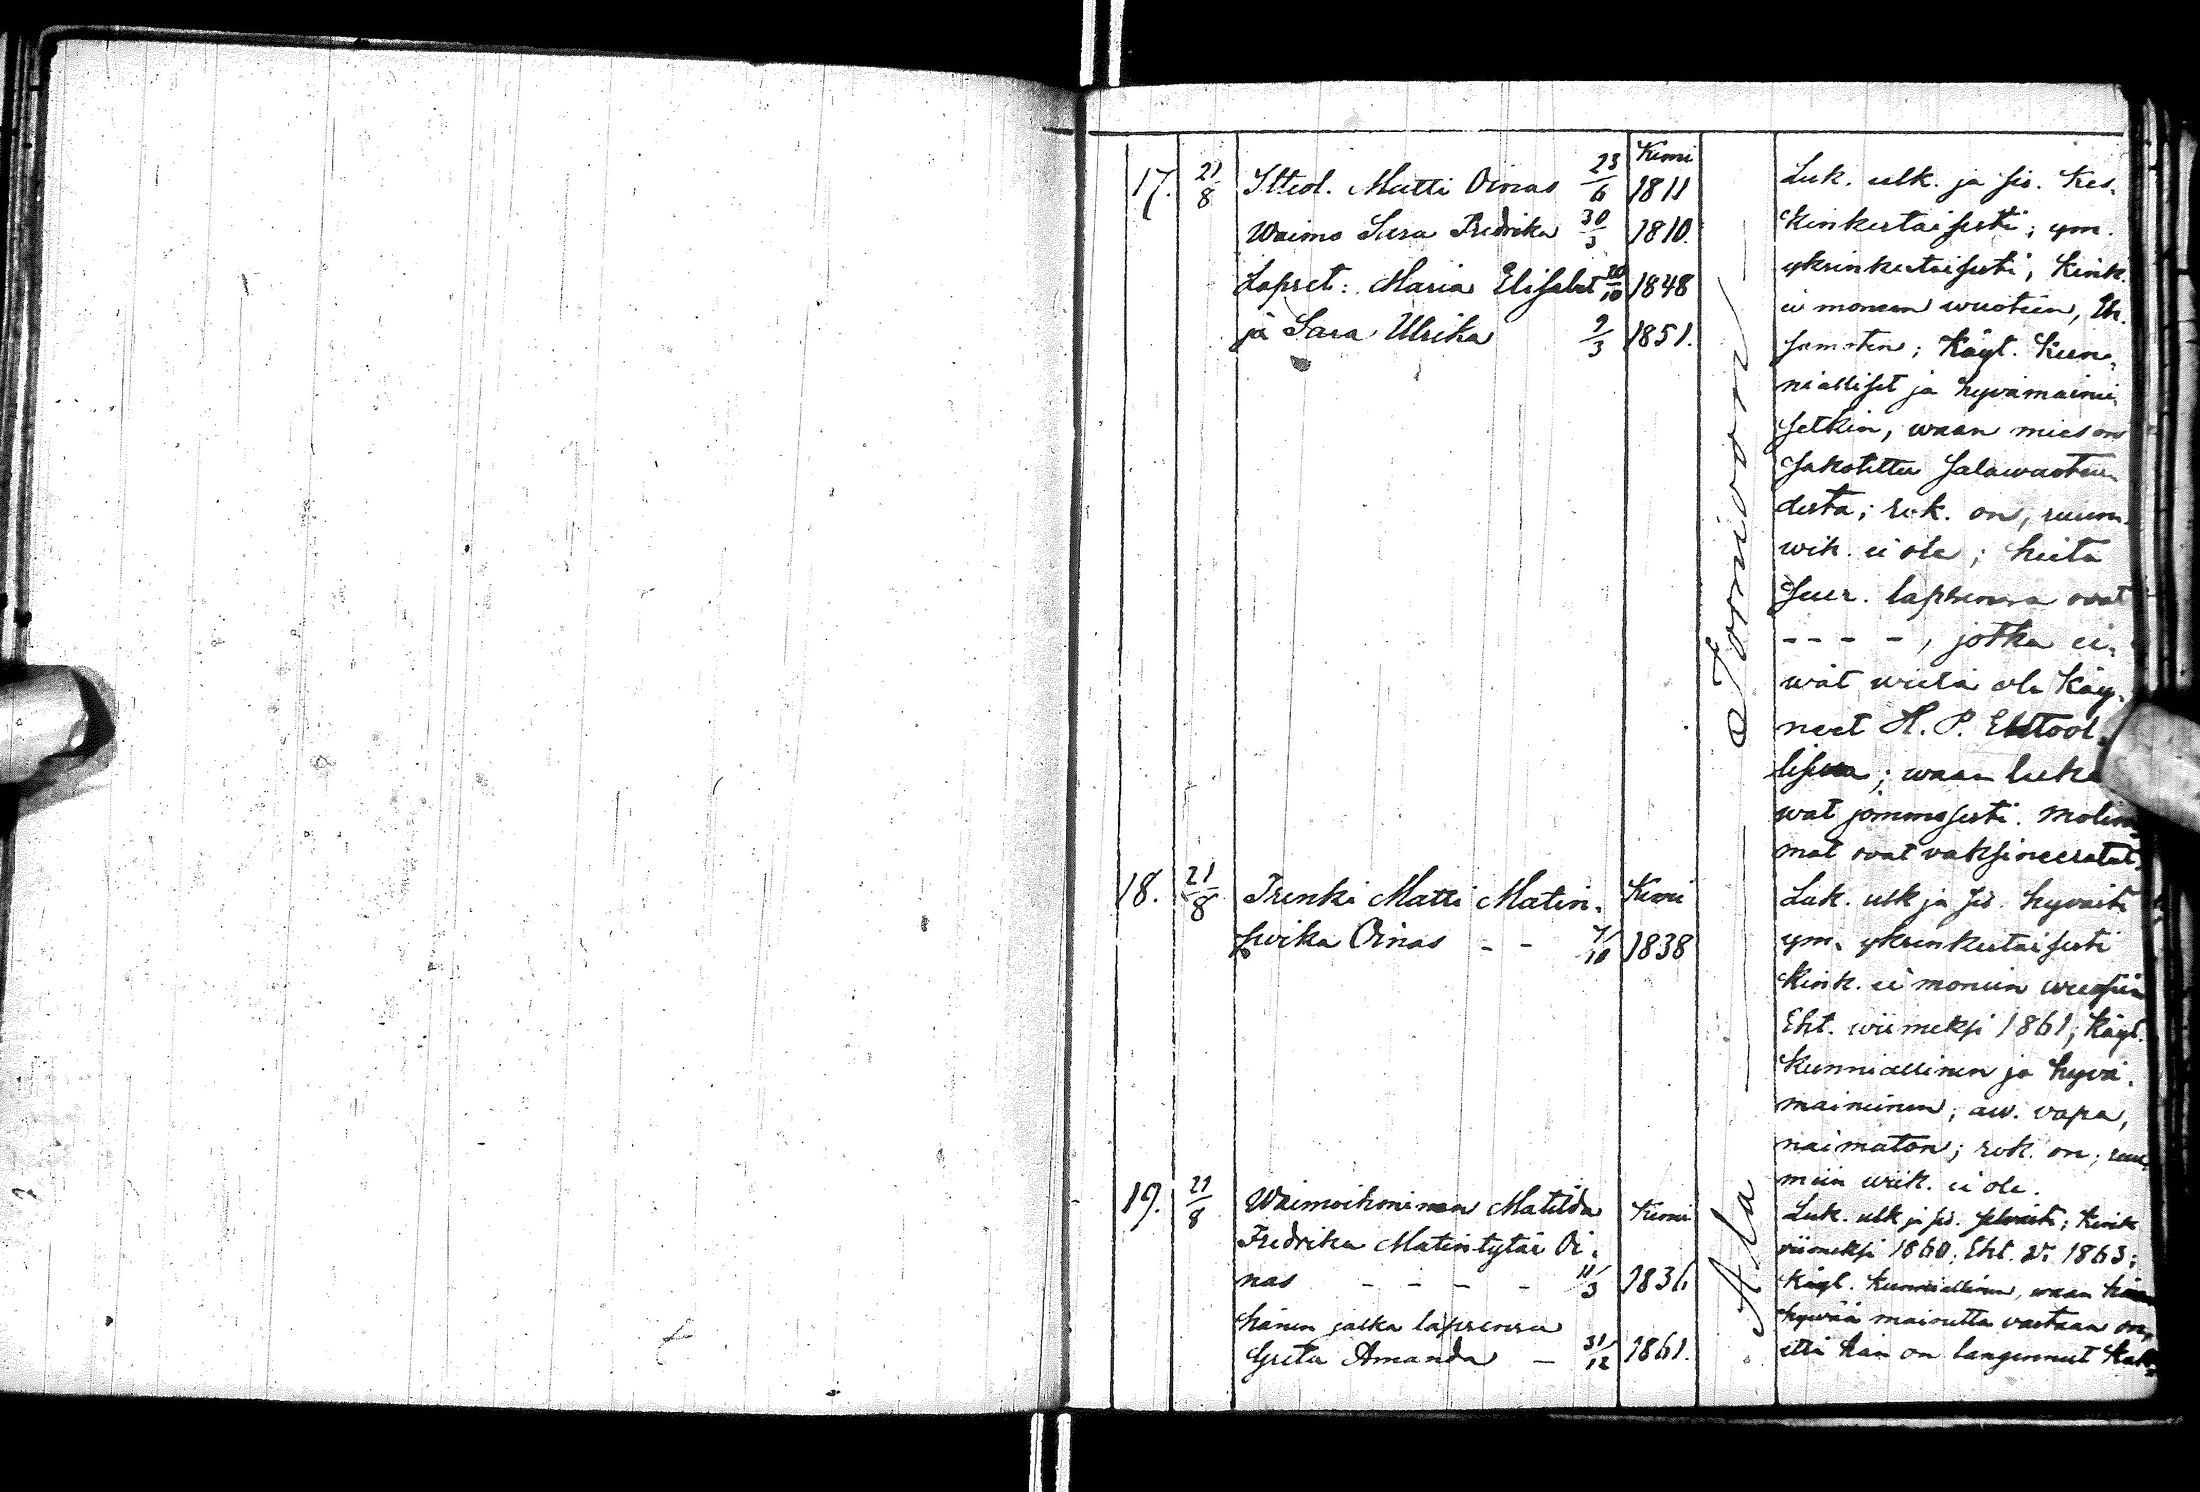 Kemi
17. 21/8 Ittel. Matti Oinas 23/6 1811
Waimo Sara Fredrika 30/3 1810.
Lapset: Maria Elisabet 20/10 1848
ja Sara Ulrika 9/3 1851.
Luk. ulk. ja sis. kes-
kinkertaisesti; ym.
yksinkertaisesti, kink.
ei moneen wuoteen, Eh.
samoten; käyt. kun-
nialliset ja hyvämaine
setkin, waan mies on
sakotettu salawuoteu-
desta; rok. on, ruum.
wik. ei ole; heitä
seur. lapsensa ovat
- - - -, jotka ei-
wät wielä ole käy-
neet H. P. Ehtool-
lisella; waan luke
wat jommosesti. Molem
mat ovat vaksineeratut.
Ala Tornioon
18. 21/8 Trenki Matti Matin- Kemi
poika Oinas - - 7/10 1838
Luk. ulk ja sis. hyvästi
ym. yksinkertaisesti
Kink. ei moniin wuosiin
Eht. wiimeksi 1861; käyt.
kunniallinen ja hyvä-
maineinen; aw. vapa,
naimaton; rok. on; ruu-
miin wik. ei ole.
19. 21/8 Waimoihminen Matilda Kemi
Fredrika Matintytär Oi-
nas - - - - 11/3 1836
hänen jalka lapsensa
Greta Amanda - 31/12 1861.
Luk. ulk ja sis. selvästi; kink
viimeksi 1860; Eht. w. 1863;
käyt. kunniallinen, waan
hywää mainetta vastaan on,
että hän on langennut